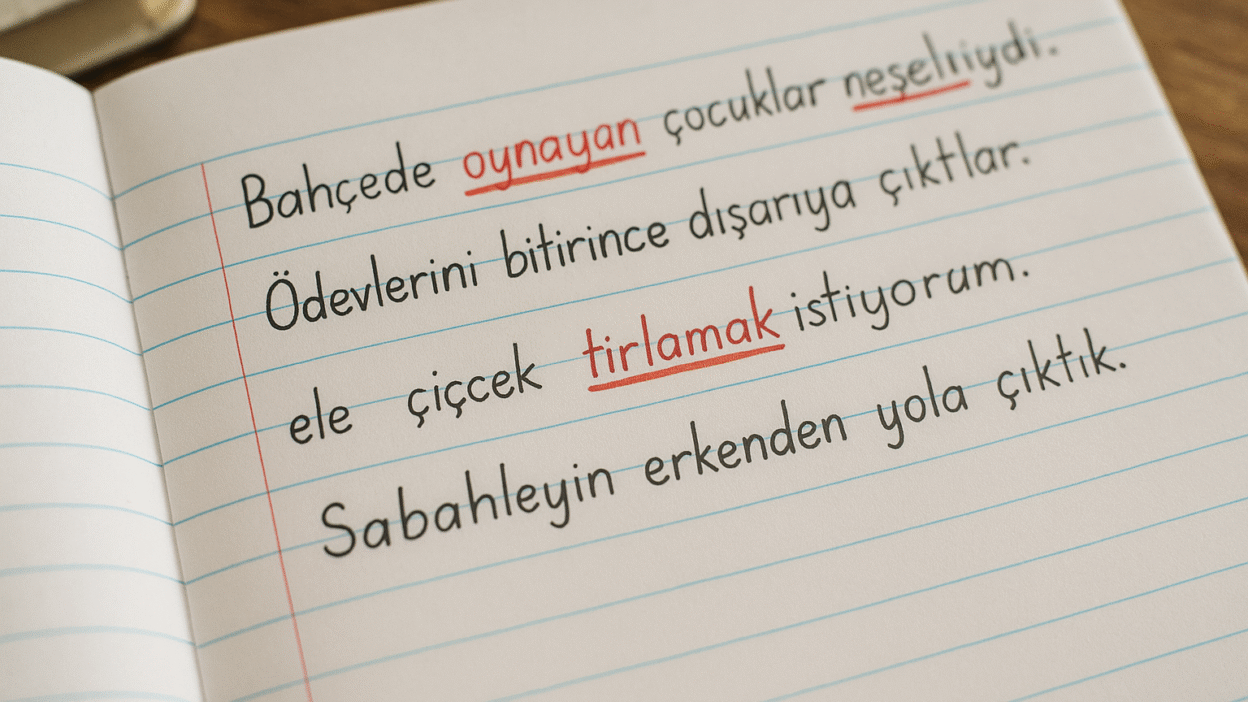 Bahçede oynayan çocuklar neşelıiydi.
Ödevlerini bitirince dışarıya çıktlar.
ele çiçcek tirlamak istiyorum.
Sabahleyin erkenden yola çıktık.